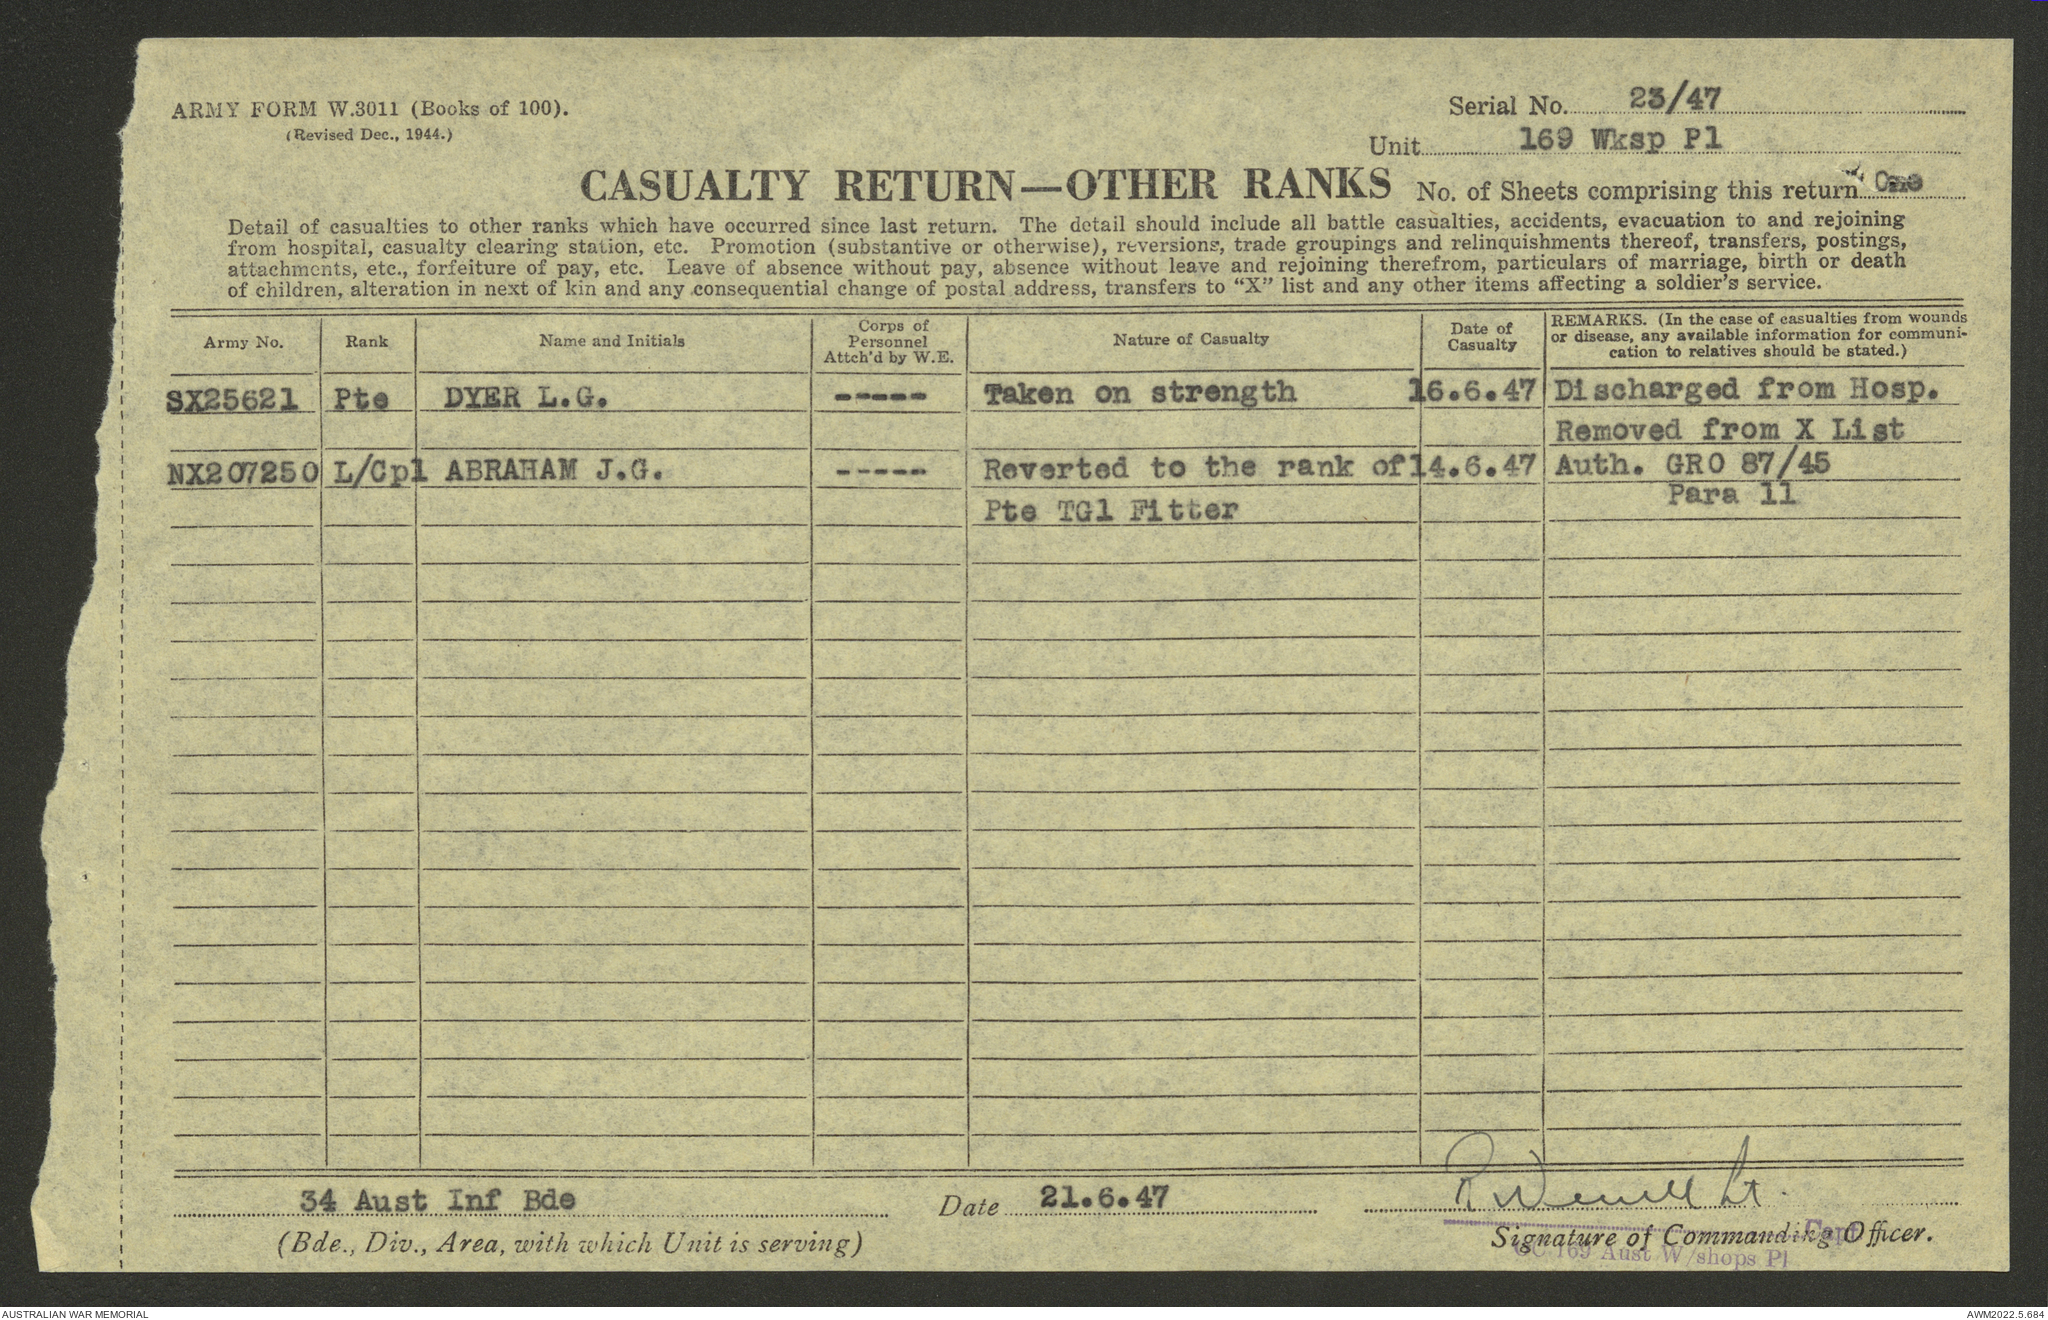 ARMY FORM W.3011 (Books of 100).
(Revised Dec., 1944.)
Serial No. 23/47
Unit 169 Wksp Pl
CASUALTY RETURN—OTHER RANKS No. of Sheets comprising this return One
Detail of casualties to other ranks which have occurred since last return. The detail should include all battle casualties, accidents, evacuation to and rejoining
from hospital, casualty clearing station, etc. Promotion (substantive or otherwise), reversions, trade groupings and relinquishments thereof, transfers, postings,
attachments, etc., forfeiture of pay, etc. Leave of absence without pay, absence without leave and rejoining therefrom, particulars of marriage, birth or death
of children, alteration in next of kin and any consequential change of postal address, transfers to “X” list and any other items affecting a soldier’s service.
Army No.
Rank
Name and Initials
Corps of
Personnel
Attch'd by W.E.
Nature of Casualty
Date of
Casualty
REMARKS. (In the case of casualties from wounds
or disease, any available information for communi-
cation to relatives should be stated.)
SX25621 Pte DYER L.G. ----- Taken on strength 16.6.47 Discharged from Hosp.
Removed from X List
NX207250 L/Cpl ABRAHAM J.G. ----- Reverted to the rank of 14.6.47 Auth. GRO 87/45
Pte TG1 Fitter Para 11
34 Aust Inf Bde
(Bde., Div., Area, with which Unit is serving)
Date 21.6.47
Lt.
Capt
Signature of Commanding Officer.
OC 169 Aust W/shops Pl
AUSTRALIAN WAR MEMORIAL
AWM2022.5.684